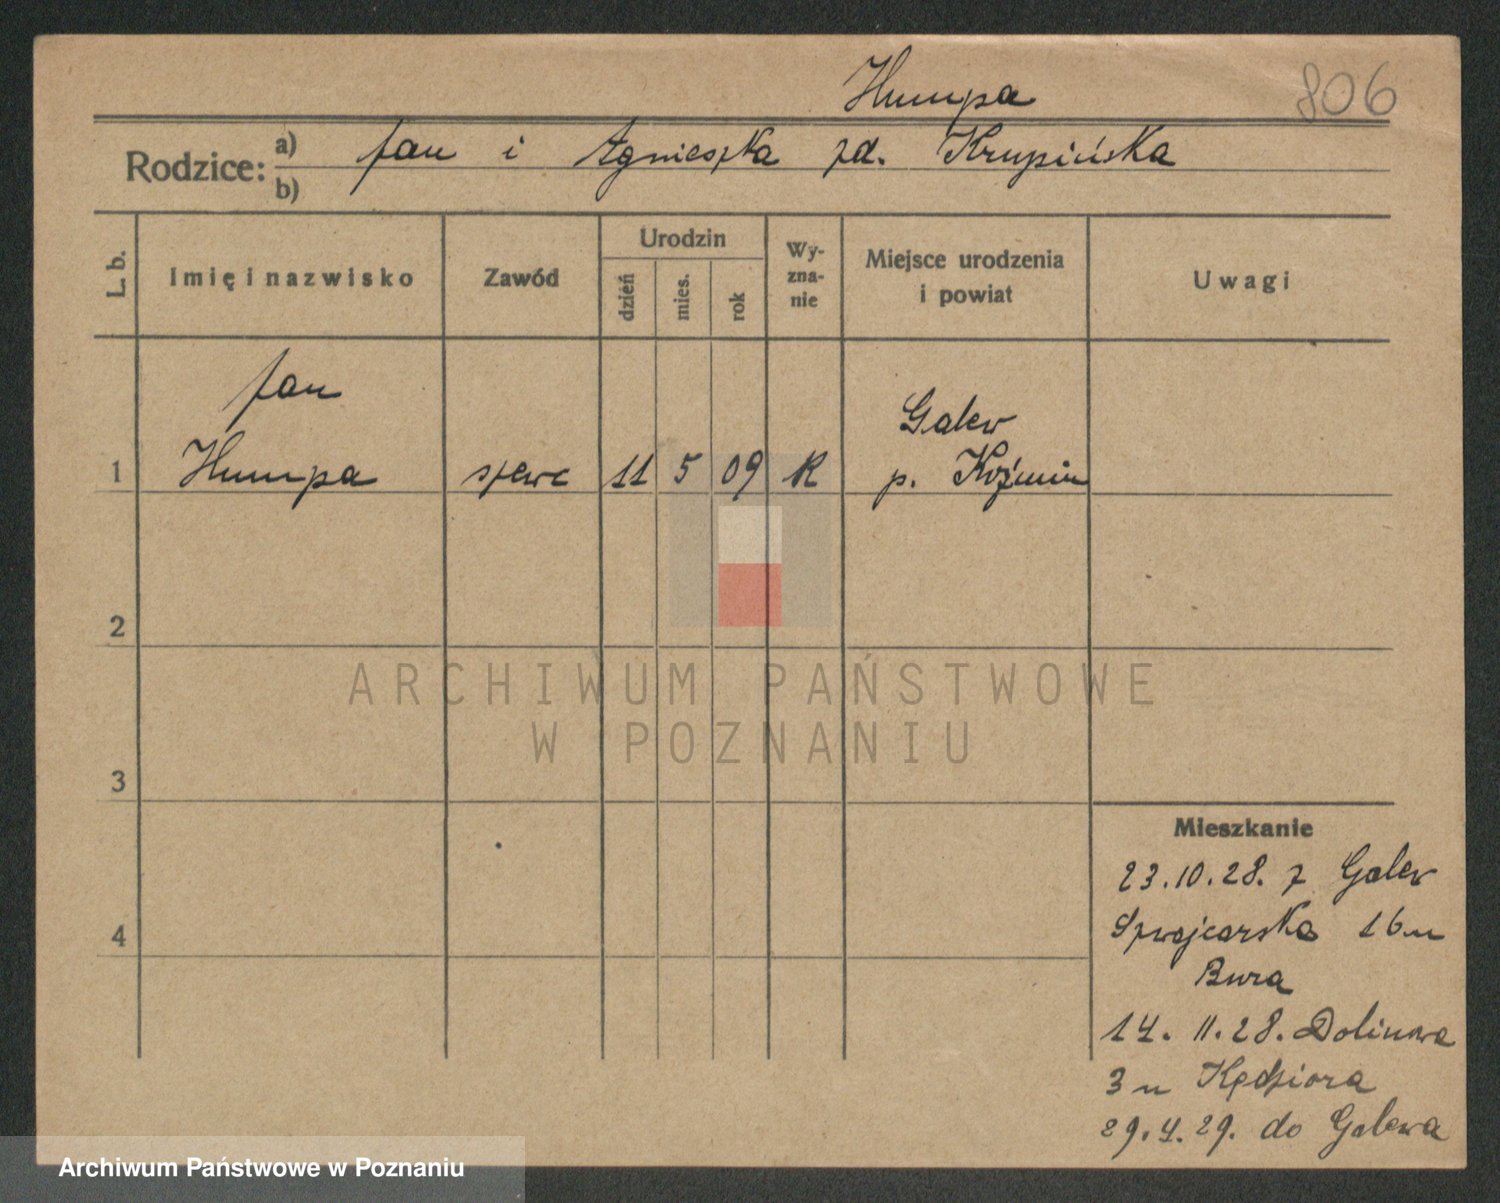 Humpa
806
Rodzice: a) Jan i Agnieszka zd. Krupińska
b)
L. b.
Imię i nazwisko
Zawód
Urodzin
dzień
mies.
rok
Wy-
zna-
nie
Miejsce urodzenia
i powiat
Uwagi
Jan
Galew
1 Humpa szewc 11 5 09 R p. Koźmin
2
3
4
Mieszkanie
23.10.28. z Galew
Szwajcarska 16 u
Bura
14. 11. 28. Dolinowa
3 u Kędziora
29.4.29. do Galewa
ARCHIWUM PAŃSTWOWE
W POZNANIU
Archiwum Państwowe w Poznaniu